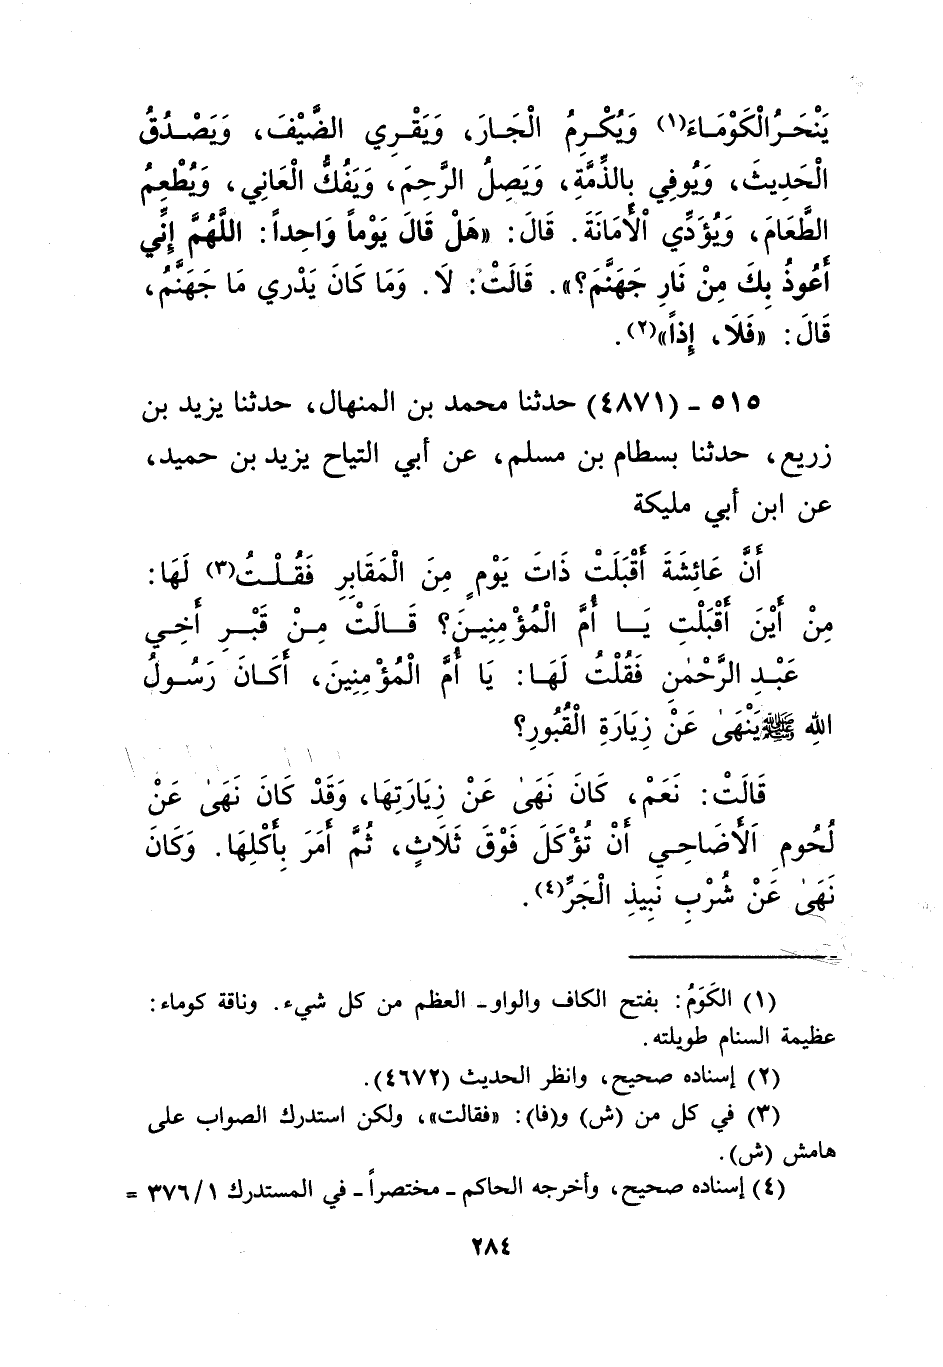 يَنْحَرُ الْكَوْمَاءَ(١) وَيُكْرِمُ الْجَارَ، وَيَقْرِي الضَّيْفَ، وَيَصْدُقُ
الْحَدِيثَ، وَيُوفِي بِالذِّمَّةِ، وَيَصِلُ الرَّحِمَ، وَيَفُكُّ الْعَانِي، وَيُطْعِمُ
الطَّعَامَ، وَيُؤَدِّي الْأَمَانَةَ. قَالَ: «هَلْ قَالَ يَوْماً وَاحِداً: اللَّهُمَّ إِنِّي
أَعُوذُ بِكَ مِنْ نَارِ جَهَنَّمَ؟». قَالَتْ: لَا. وَمَا كَانَ يَدْرِي مَا جَهَنَّمُ،
قَالَ: «فَلَا، إِذاً»(٢).
٥١٥ - (٤٨٧١) حدثنا محمد بن المنهال، حدثنا يزيد بن
زريع، حدثنا بسطام بن مسلم، عن أبي التياح يزيد بن حميد،
عن ابن أبي مليكة
أَنَّ عَائِشَةَ أَقْبَلَتْ ذَاتَ يَوْمٍ مِنَ الْمَقَابِرِ فَقُلْتُ(٣) لَهَا:
مِنْ أَيْنَ أَقْبَلْتِ يَا أُمَّ الْمُؤْمِنِينَ؟ قَالَتْ مِنْ قَبْرِ أَخِي
عَبْدِ الرَّحْمٰنِ فَقُلْتُ لَهَا: يَا أُمَّ الْمُؤْمِنِينَ، أَكَانَ رَسُولُ
اللهِ ﷺ يَنْهَىٰ عَنْ زِيَارَةِ الْقُبُورِ؟
قَالَتْ: نَعَمْ، كَانَ نَهَىٰ عَنْ زِيَارَتِهَا، وَقَدْ كَانَ نَهَىٰ عَنْ
لُحُومِ اَلْأَضَاحِي أَنْ تُؤْكَلَ فَوْقَ ثَلَاثٍ، ثُمَّ أَمَرَ بِأَكْلِهَا. وَكَانَ
نَهَىٰ عَنْ شُرْبِ نَبِيذِ الْجَرِّ(٤).
(١) الكَوَمُ: بفتح الكاف والواو - العظم من كل شيء. وناقة كوماء:
عظيمة السنام طويلته.
(٢) إسناده صحيح، وانظر الحديث (٤٦٧٢).
(٣) في كل من (ش) و(فا): «فقالت»، ولكن استدرك الصواب على
هامش (ش).
(٤) إسناده صحيح، وأخرجه الحاكم - مختصراً - في المستدرك ٣٧٦/١ =
٢٨٤